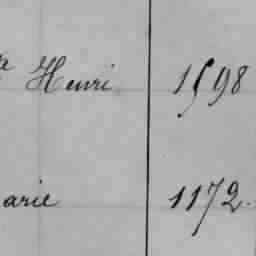 a Henri 1598
arie 1172.